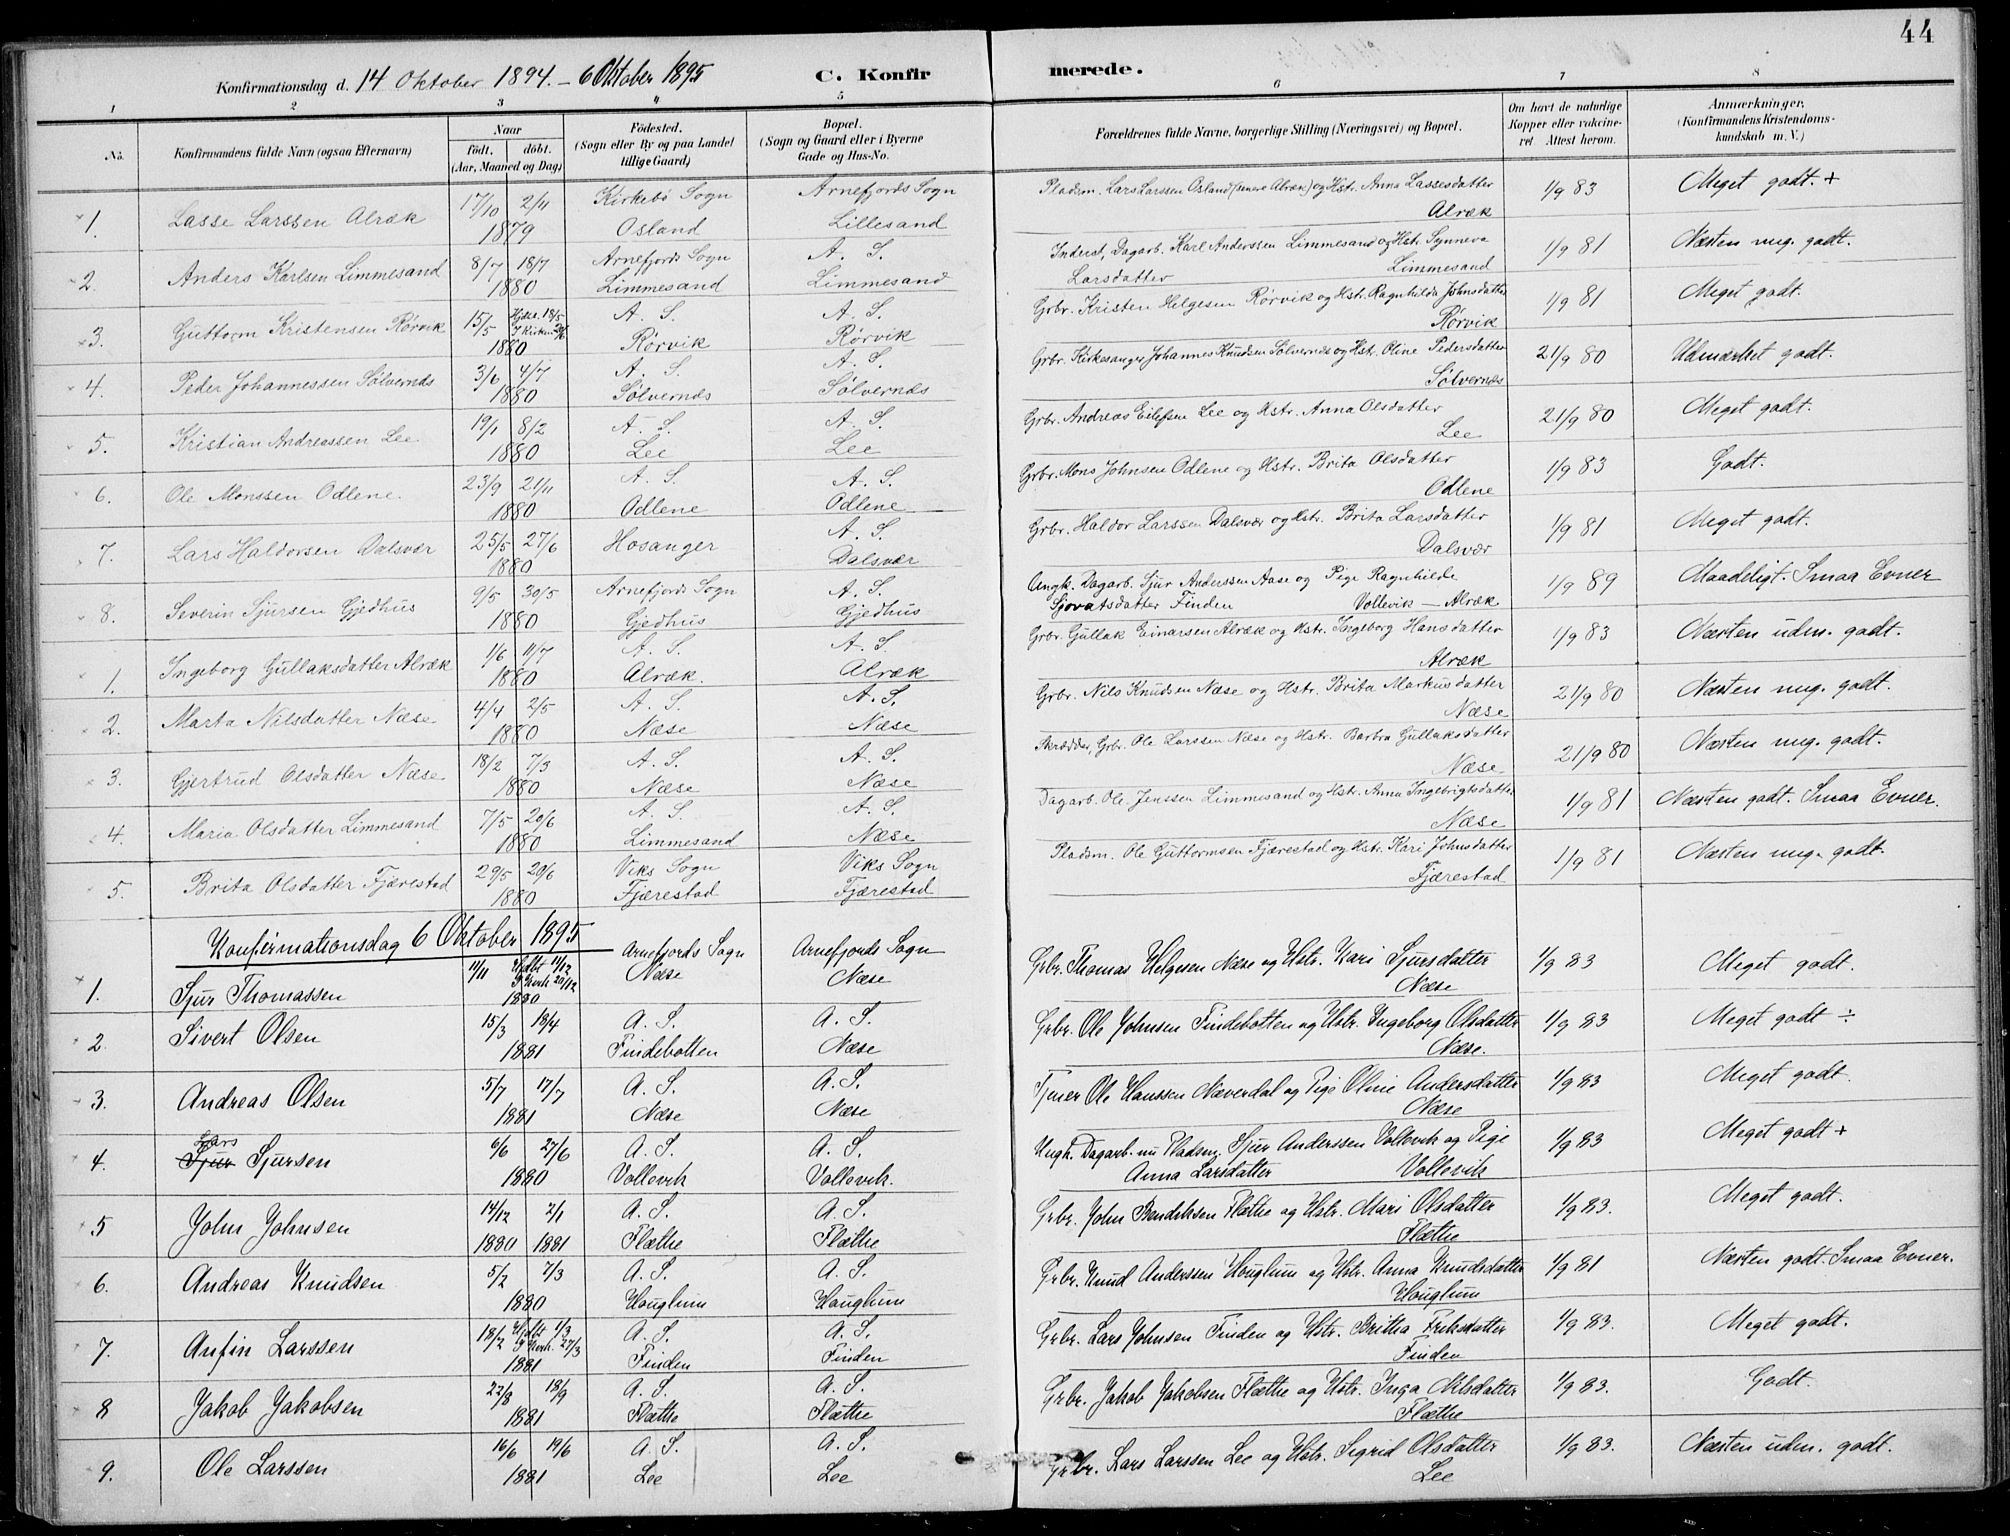 44
Konfirmationsdag d. 14 Oktober 1894. – 6 Oktober 1895 C. Konfirmerede.
1 2 3 4 5 6 7 8
No. Konfirmandens fulde Navn (ogsaa Efternavn) Naar født, døbt. (Aar, Maaned og Dag) Fødested. (Sogn eller By og paa Landet tillige Gaard) Bopæl. (Sogn og Gaard eller i Byerne Gade og Hus-No. Forældrenes fulde Navne, borgerlige Stilling (Næringsvei) og Bopæl. Om havt de naturlige Kopper eller vakcineret Attest herom. Anmærkninger. (Konfirmandens Kristendomskundskab m. V.)
1. Lasse Larssen Alræk 17/10 2/11 1879 Kirkebø Sogn Osland Arnefjords Sogn Lillesand Pladsm. Lars Larssen Osland (senere Alræk) og Hstr. Anna Lassesdatter Alræk 1/9 83 Meget godt. +
2. Anders Karlsen Limmesand 8/7 18/7 1880 Arnefjords Sogn Limmesand A. S. Limmesand Inderst, Dagarb. Karl Anderssen Limmesand og Hstr. Synneva Larsdatter Limmesand 1/9 81 Næsten mg. godt.
3. Guttorm Kristensen Rørvik 15/5 Hjdø. 18/5 I Kirken 20/6 1880 A. S. Rørvik A. S. Rørvik Grbr. Kristen Helgesen Rørvik og Hstr. Ragnhilda Johnsdatter Rørvik 1/9 81 Meget godt.
4. Peder Johannessen Sølvernds 3/6 4/7 1880 A. S. Sølvernds A. S. Sølvernds Grbr. Kirkesanger Johannes Knudsen Sølvernds og Hstr. Oline Pedersdatter Sølvernæs 21/9 80 Udmærket godt.
5. Kristian Andreassen Lee. 19/1 8/2 1880 A. S. Lee A. S. Lee Grbr. Andreas Eilefsen Lee og Hstr. Anna Olsdatter Lee 21/9 80 Meget godt.
6. Ole Monssen Odlene. 23/9 21/11 1880 A. S. Odlene A. S. Odlene Grbr. Mons Johnsen Odlene og Hstr. Brita Olsdatter Odlene 1/9 83 Godt.
7. Lars Haldorsen Dalsvær 25/5 27/6 1880 Hosanger A. S. Dalsvær Grbr. Haldor Larssen Dalsvær og Hstr. Brita Larsdatter Dalsvær 1/9 81 Meget godt.
8. Severin Sjursen Gjedhus 9/5 30/5 1880 Arnefjords Sogn Gjedhus A. S. Gjedhus Ungk. Dagarb. Sjur Anderssen Aase og Pige Ragnhilde Sjovatsdatter Finden Vollevik – Alræk 1/9 89 Maadeligt. Smaa Evner
1. Ingeborg Gullaksdatter Alræk 1/6 11/7 1880 A. S. Alræk. A. S. Alræk Grbr. Gullak Einarsen Alræk og Hstr. Ingeborg Hansdatter Alræk 1/9 83 Næsten udm. godt.
2. Marta Nilsdatter Næse 4/4 2/5 1880 A. S. Næse A. S. Næse Grbr. Nils Knudsen Næse og Hstr. Brita Markusdatter Næse 21/9 80 Næsten mg. godt.
3. Gjertrud Olsdatter Næse 18/2 7/3 1880 A. S. Næse A. S. Næse Skrædder, Grbr. Ole Larssen Næse og Hstr. Barbra Gullaksdatter Næse 21/9 80 Næsten mg. godt.
4. Maria Olsdatter Limmesand 7/5 20/6 1880 A. S. Limmesand A. S. Næse Dagarb. Ole Jenssen Limmesand og Hstr. Anna Ingebrigtsdatter Næse 1/9 81 Næsten godt. Smaa Evner.
5. Brita Olsdatter Fjærestad 29/5 20/6 1880 Viks Sogn Fjærestad Viks Sogn Fjærestad Pladsm. Ole Guttormsen Fjærestad og Hstr. Kari Johnsdatter Fjærestad 1/9 81 Næsten mg. godt.
Konfirmationsdag 6 Oktober 1895
1. Sjur Thomassen 11/11 Hjdbt 11/12 I Kirk 20/12 1880 Arnefjords Sogn Næse Arnefjords Sogn Næse Grbr. Thomas Helgesen Næse og Hstr. Kari Sjursdatter Næse 1/9 83 Meget godt.
2. Sivert Olsen 15/3 18/4 1881 A. S. Findebotten A. S. Næse Grbr. Ole Johnsen Findebotten og Hstr. Ingeborg Olsdatter Næse. 1/9 83 Meget godt ÷
3. Andreas Olsen 5/7 17/7 1881 A. S. Næse A. S. Næse Tjener Ole Hanssen Næverdal og Pige Oline Andersdatter Næse 1/9 83 Meget godt.
4. Lars Sjur Sjursen 6/6 27/6 1880 A. S. Vollevik A. S. Vollevik. Ungk. Dagarb. nu Pladsm. Sjur Anderssen Vollevik og Pige Anna Larsdatter Vollevik 1/9 83 Meget godt +
5 John Johnsen 14/12 2/1 1880 1881 A. S. Flæthe A. S. Flæthe Grbr. John Bendiksen Flæthe og Hstr. Mari Olsdatter Flæthe 1/9 83. Meget godt.
6. Andreas Knudsen 5/2 7/3 1880 A. S. Houglum A. S. Houglum Grbr. Knud Anderssen Houglum og Hstr. Anna Knudsdatter Houglum 1/9 81 Næsten godt. Smaa Evner.
7. Anfin Larssen 18/2 Hjdbt 1/3 I Kirk. 27/3 1881 A. S. Finden A. S. Finden Grbr. Lars Johnsen Finden og Hstr. Britha Eriksdatter Finden 1/9 83. Meget godt.
8 Jakob Jakobsen 22/8 18/9 1881 A. S. Flæthe A. S. Flæthe Grbr. Jakob Jakobsen Flæthe og Hstr. Inga Nilsdatter Flæthe 1/9 83. Godt.
9. Ole Larssen 16/6 19/6 1881 A. S. Lee A. S. Lee Grbr. Lars Larssen Lee og Hstr. Sigrid Olsdatter Lee 1/9 83. Næsten udm. godt.